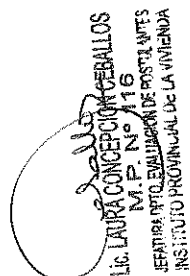 Lic. LAURA CONCEPCION CEBALLOS
M.P. Nº 116
JEFATURA DPTO. EVALUACIÓN DE POSTULANTES
INSTITUTO PROVINCIAL DE LA VIVIENDA